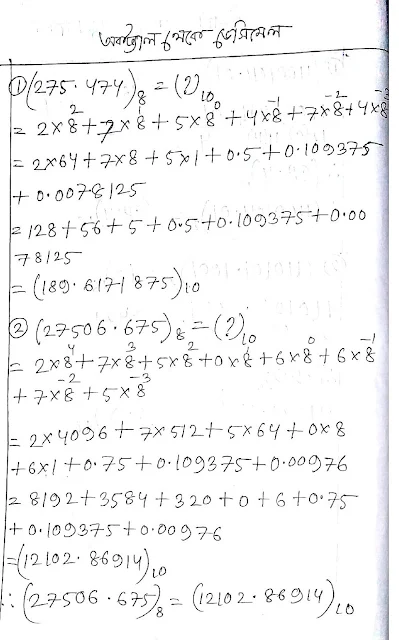 অক্টাল থেকে ডেসিমেল
① (275.474)₈ = (?)₁₀
= 2×8² + 7×8¹ + 5×8⁰ + 4×8⁻¹ + 7×8⁻² + 4×8⁻³
= 2×64 + 7×8 + 5×1 + 0.5 + 0.109375
+ 0.0078125
= 128 + 56 + 5 + 0.5 + 0.109375 + 0.00
78125
= (189.6171875)₁₀
② (27506.675)₈ = (?)₁₀
= 2×8⁴ + 7×8³ + 5×8² + 0×8¹ + 6×8⁰ + 6×8⁻¹
+ 7×8⁻² + 5×8⁻³
= 2×4096 + 7×512 + 5×64 + 0×8
+ 6×1 + 0.75 + 0.109375 + 0.00976
= 8192 + 3584 + 320 + 0 + 6 + 0.75
+ 0.109375 + 0.00976
= (12102.86914)₁₀
∴ (27506.675)₈ = (12102.86914)₁₀